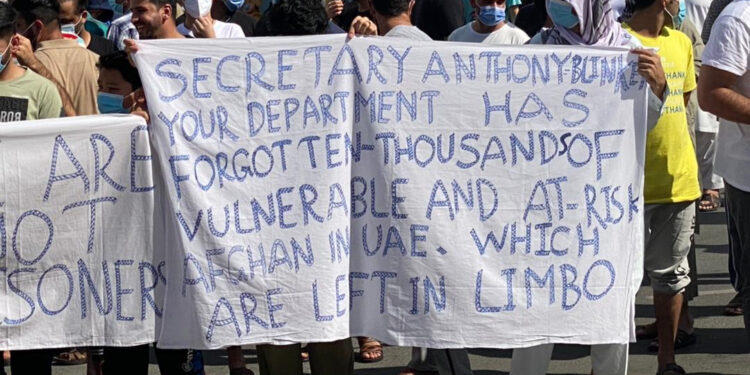 SECRETARY ANTHONY BLINKEN
YOUR DEPARTMENT HAS
FORGOTTEN-THOUSANDS OF
VULNERABLE AND AT-RISK
AFGHAN IN UAE. WHICH
ARE LEFT IN LIMBO
ARE
NOT
SONERS